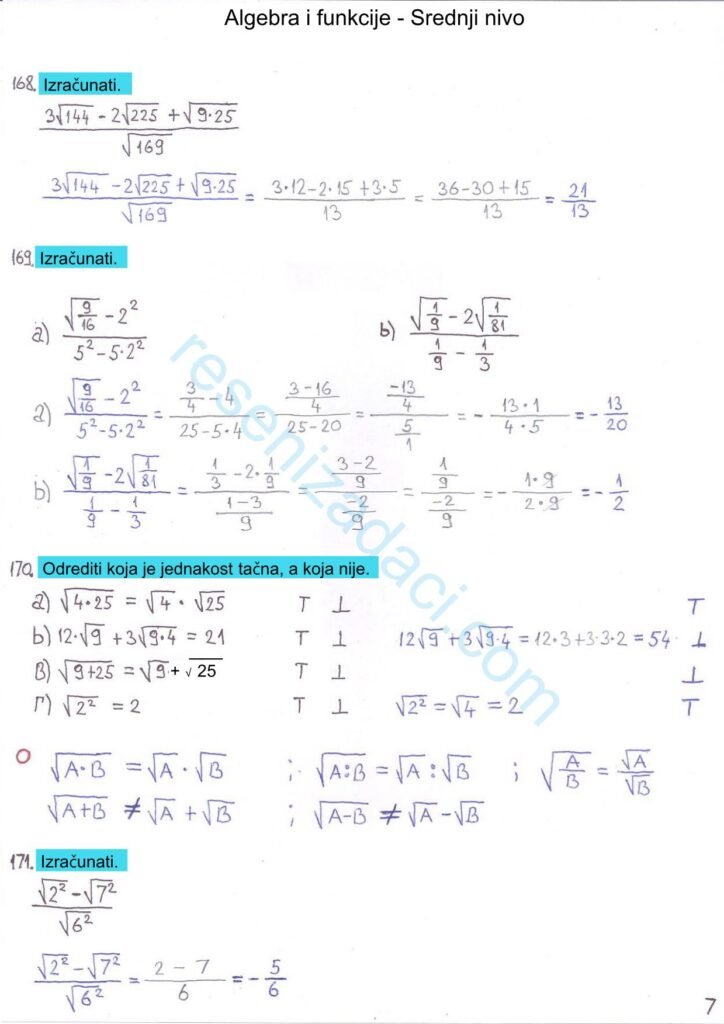 Algebra i funkcije - Srednji nivo
168. Izračunati.
(3√144 - 2√225 + √(9·25))/√169
(3√144 - 2√225 + √(9·25))/√169 = (3·12-2·15+3·5)/13 = (36-30+15)/13 = 21/13
169. Izračunati.
а) (√(9/16) - 2²)/(5² - 5·2²) б) (√(1/9) - 2√(1/81))/(1/9 - 1/3)
а) (√(9/16) - 2²)/(5² - 5·2²) = (3/4 - 4)/(25-5·4) = ((3-16)/4)/(25-20) = (-13/4)/(5/1) = - (13·1)/(4·5) = - 13/20
б) (√(1/9) - 2√(1/81))/(1/9 - 1/3) = (1/3 - 2·1/9)/((1-3)/9) = ((3-2)/9)/(-2/9) = (1/9)/(-2/9) = - (1·9)/(2·9) = - 1/2
170. Odrediti koja je jednakost tačna, a koja nije.
а) √(4·25) = √4 · √25 T ⊥ T
б) 12·√9 + 3√(9·4) = 21 T ⊥ 12√9 + 3√(9·4) = 12·3+3·3·2 = 54 ⊥
в) √(9+25) = √9 + √25 T ⊥ ⊥
г) √(2²) = 2 T ⊥ √(2²) = √4 = 2 T
√(A·B) = √A · √B ; √(A:B) = √A : √B ; √(A/B) = √A/√B
√(A+B) ≠ √A + √B ; √(A-B) ≠ √A - √B
171. Izračunati.
(√(2²) - √(7²))/√(6²)
(√(2²) - √(7²))/√(6²) = (2 - 7)/6 = - 5/6
7
resenizadaci.com